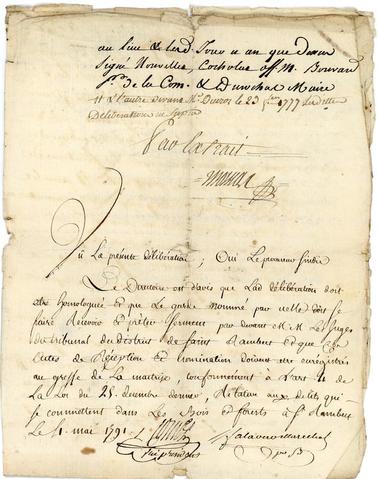 au Lieu & led. Jour & an que dessus
Signé Nouvellet, off. M. Bouvard
pr. de la Com. & Durochat Maire
et L'autre devant Mr. Ducros le 23 1777 Ladite
Délibération
Par Extrait
Vû La présente délibération ; Oui Le procureur sindic
Le Directoire est d'avis que Lad. délibération doit
être homologuée et que Le garde nommé par icelle doit se
faire Recevoir et prêter Serment par devant M.M. Les Juges
du tribunal du district de saint Rambert et que
actes de Réception et nomination doivent être enregistrés
au greffe de La maitrise, conformément à L'art. 4 de
La Loi du 25. décembre dernier, Relative aux delits qui
se commettent dans Les Bois et forêts à St. Rambert
Le 1. mai 1791